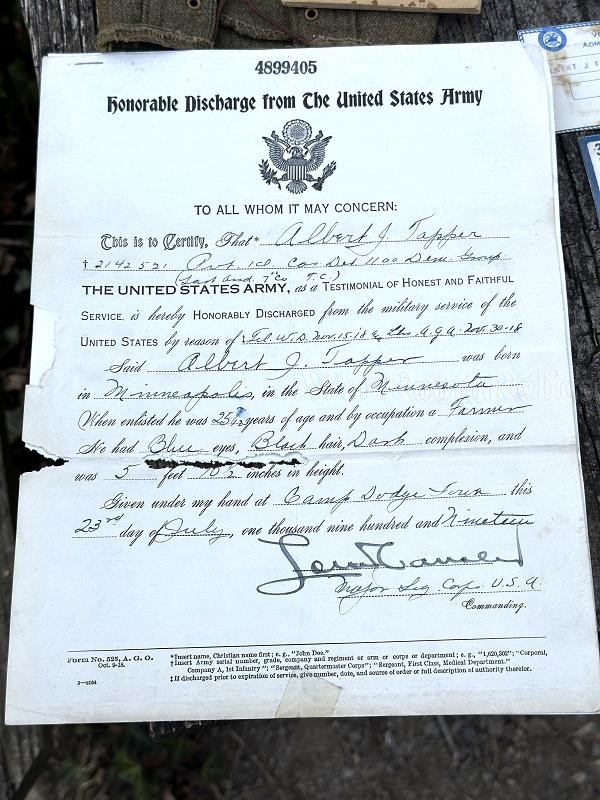 4899405
Honorable Discharge from The United States Army
TO ALL WHOM IT MAY CONCERN:
This is to Certify, That* Albert J Tapper
†2142521 Pvt. 1cl. Cas Det 1100 Dem. Group
(Last Asnd 7" Co T.C.)
THE UNITED STATES ARMY, as a TESTIMONIAL OF HONEST AND FAITHFUL
SERVICE, is hereby HONORABLY DISCHARGED from the military service of the
UNITED STATES by reason of ‡ Tel. W.D. Nov. 15-18 & Ltr A.G.O. Nov. 30-18
Said Albert J. Tapper was born
in Minneapolis, in the State of Minnesota
When enlisted he was 25 years of age and by occupation a Farmer
He had Blue eyes, Black hair, Dark complexion, and
was 5 feet 10½ inches in height.
Given under my hand at Camp Dodge Iowa this
23rd day of July, one thousand nine hundred and Nineteen
Major Sig. Corps U.S.A.
Commanding.
FORM No. 525, A. G. O.
Oct. 9-18.
3—3164
*Insert name, Christian name first; e. g., "John Doe."
†Insert Army serial number, grade, company and regiment or arm or corps or department; e. g., "1,620,302"; "Corporal,
Company A, 1st Infantry"; "Sergeant, Quartermaster Corps"; "Sergeant, First Class, Medical Department."
‡If discharged prior to expiration of service, give number, date, and source of order or full description of authority therefor.